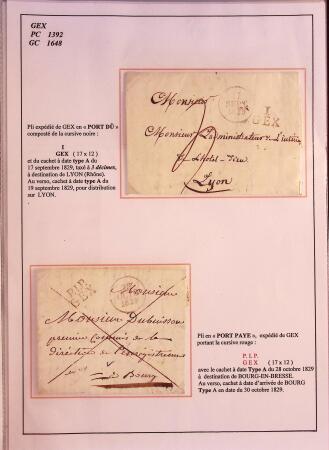 GEX
PC 1392
GC 1648
Pli expédié de GEX en « PORT DÛ »
composté de la cursive noire :
1
GEX ( 17 x 12 )
et du cachet à date type A du
17 septembre 1829, taxé à 3 décimes,
à destination de LYON (Rhône).
Au verso, cachet à date type A du
19 septembre 1829, pour distribution
sur LYON.
1
GEX
Monsieur
Monsieur L'administrateur de
Lyon
P.1.P.
GEX
Monsieur
Monsieur Dubuisson
premier Commis de la
direction de l'enregistrement
à Bourg
Pli en « PORT PAYE », expédié de GEX
portant la cursive rouge :
P.1.P.
GEX ( 17 x 12 )
avec le cachet à date Type A du 28 octobre 1829
à destination de BOURG-EN-BRESSE.
Au verso, cachet à date d'arrivée de BOURG
Type A en date du 30 octobre 1829.